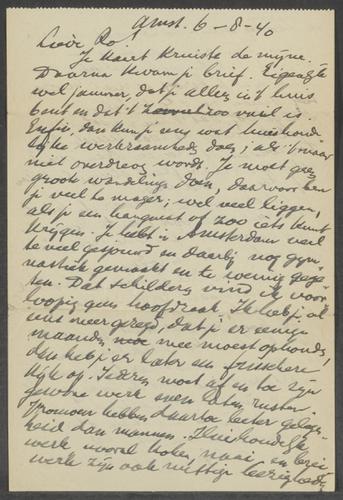 Amst. 6-8-40
Lieve Ro,
Je kaart kruiste de mijne.
Daarna kwam je brief. Eigenlijk
wel jammer, dat je alleen in 't huis
bent en dat 't zoo vuil is.
Enfin, dan kun je nog wat huishoude-
lijke werkzaamheden doen; als 't maar
niet overdreven wordt. Je moet geen
groote wandelingen doen, daarvoor ben
je veel te mager; wel veel liggen,
als je een hangmat of zoo iets kunt
krijgen. Je hebt in Amsterdam veel
te veel gesport en daarbij nog gym-
nastiek gemaakt en te weinig gege-
ten. Dat schilderen vind ik voor-
loopig geen hoofdzaak. Ik heb je al
eens meer gezegd, dat je er eenige
maanden mee moest ophouden,
dan heb je er later een frisschere
kijk op. Iedereen moet af en toe zijn
gewone werk even laten rusten.
Vrouwen hebben daartoe beter gelegen-
heid dan mannen. Huishoudelijk
werk vooral koken, naai- en brei-
werk zijn ook nuttige bezigheden